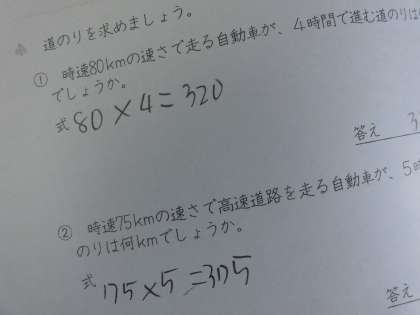 道のりを求めましょう。
① 時速80kmの速さで走る自動車が、4時間で進む道のりは
でしょうか。
式 80×4=320
答え 3
② 時速75kmの速さで高速道路を走る自動車が、5時
のりは何kmでしょうか。
式 75×5=375
答え